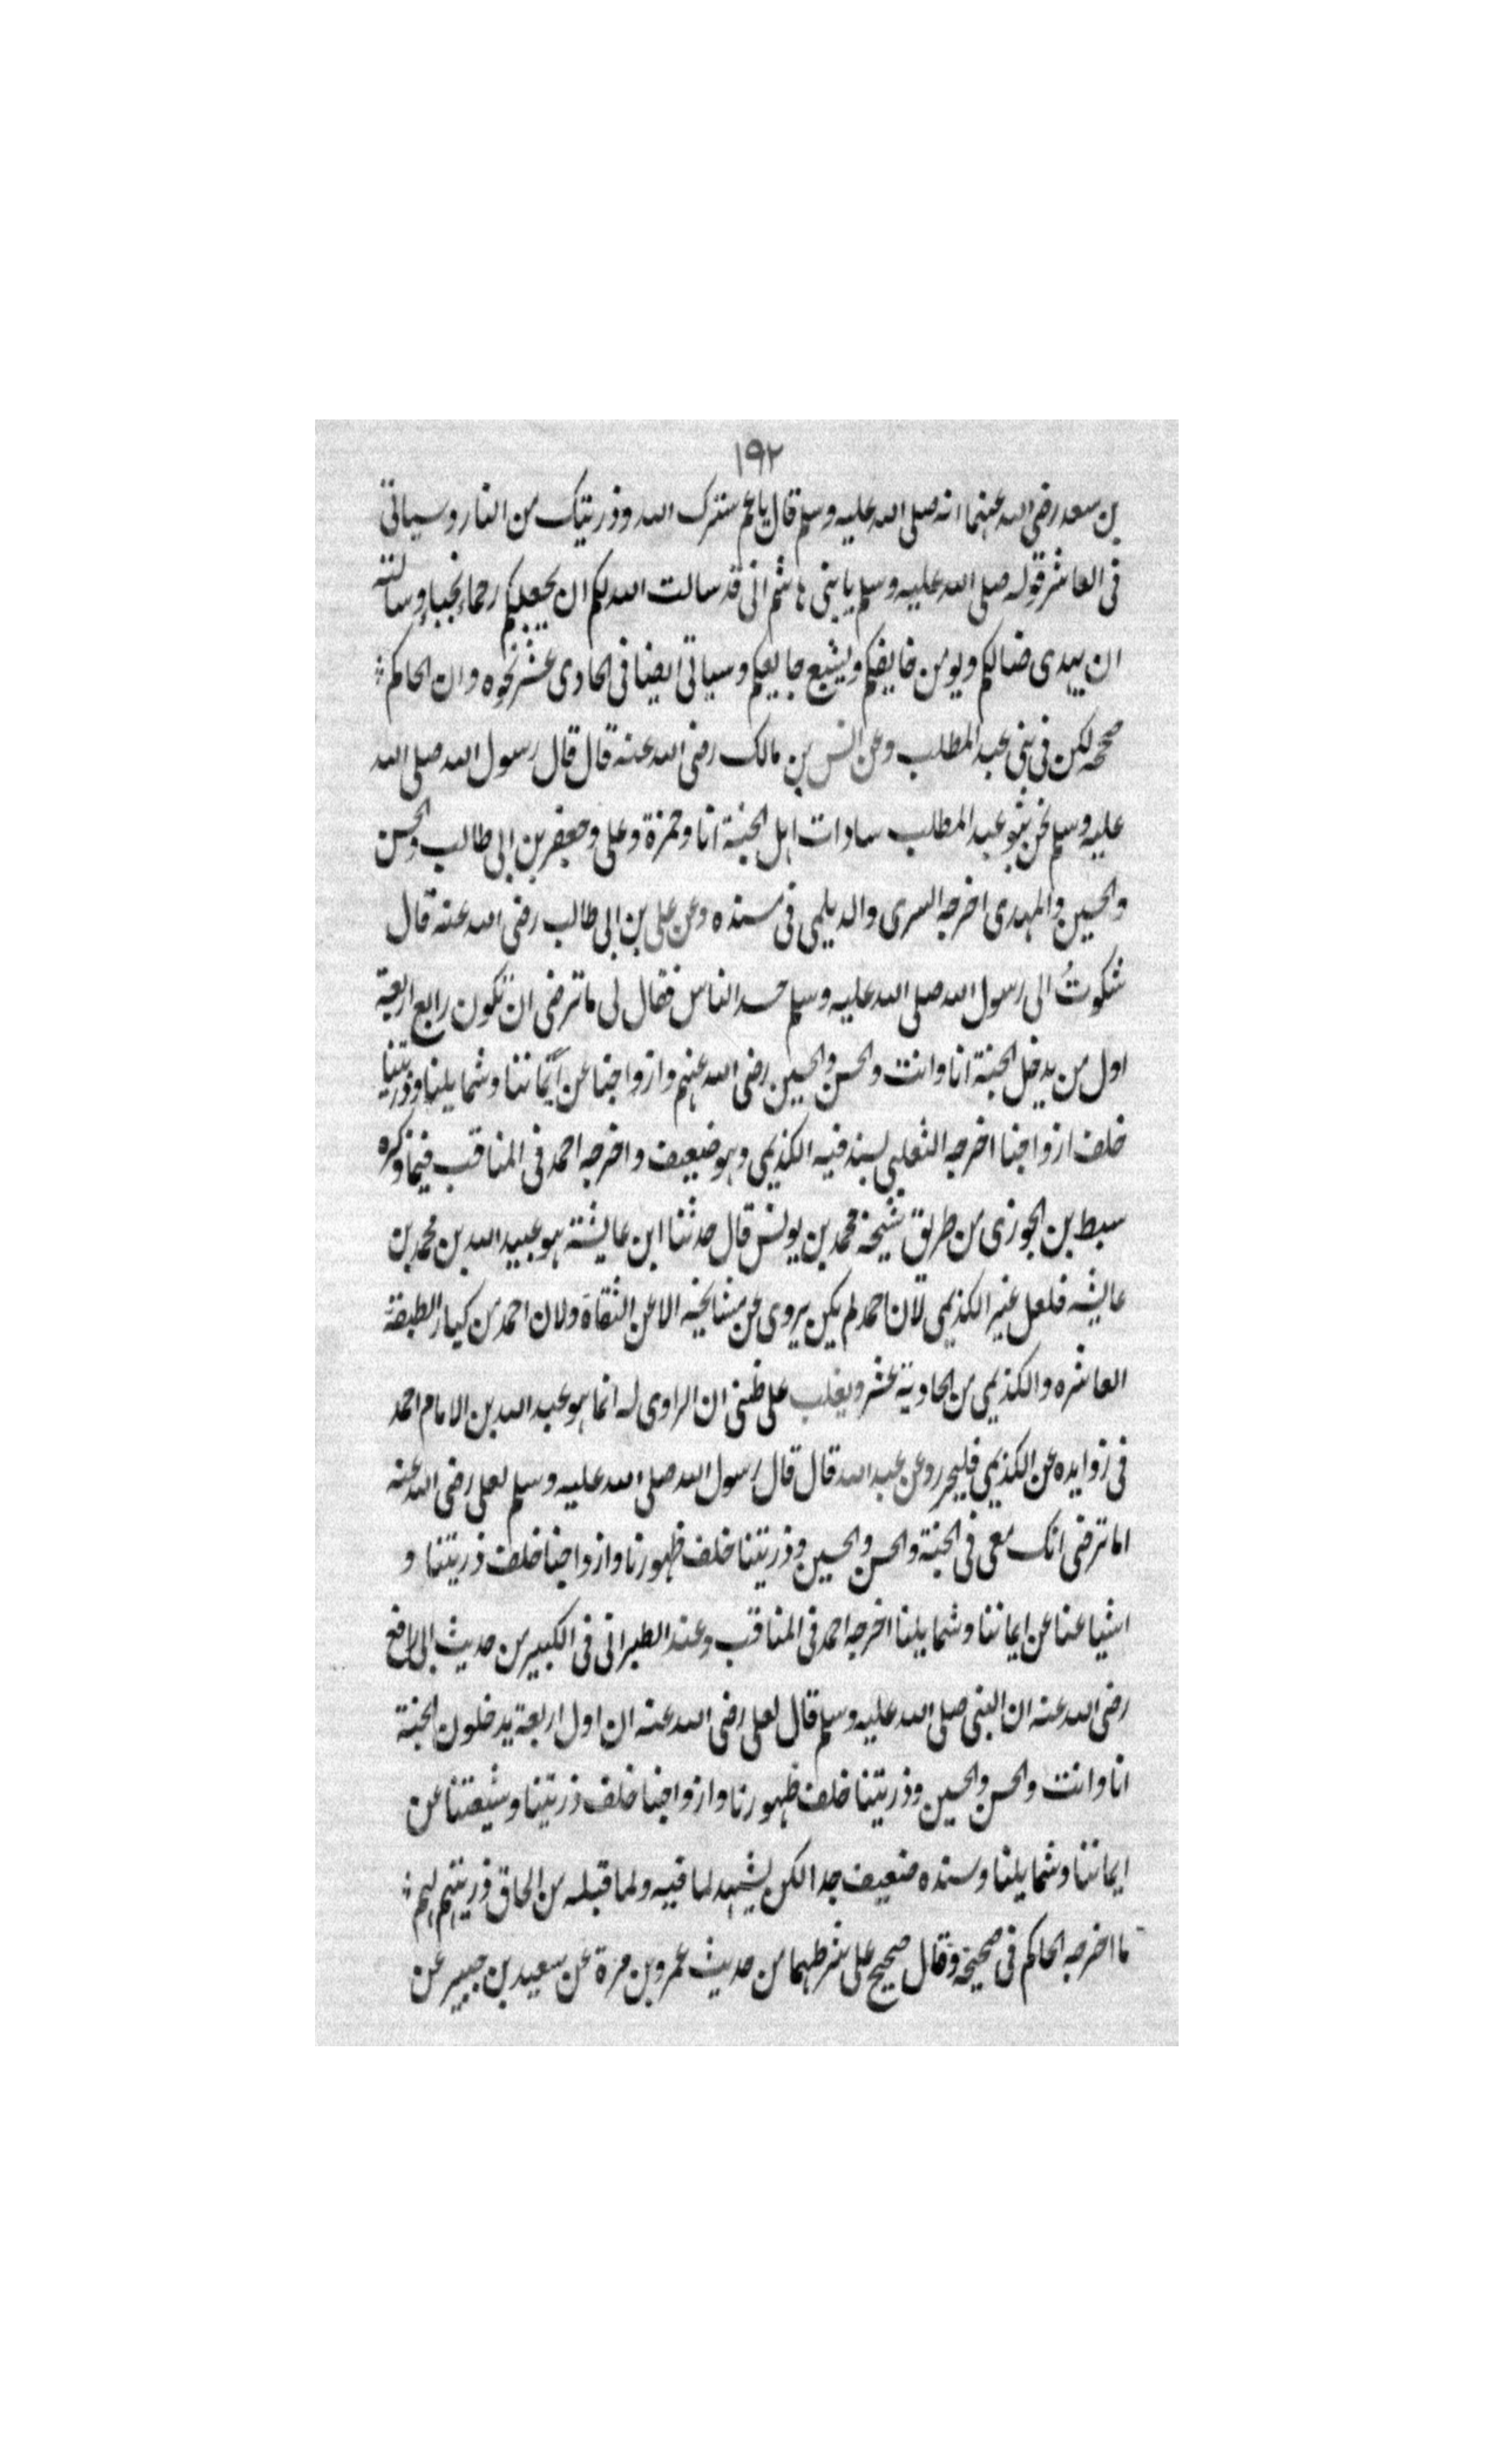 ١٩٢
بن سعد رضى الله عنهما انه صلى الله عليه وسلم قال يا عم سترك الله وذريتك من النار وسياتى
فى العاشر قوله صلى الله عليه وسلم يا بنى هاشم انى قد سالت الله لكم ان يجعلكم رحماء نجباء وسالته
ان يهدى ضالكم ويومن خايفكم ويشبع جايعكم وسياتى ايضا فى الحادى عشر نحوه وان الحاكم
صححه لكن فى بنى عبد المطلب وعن انس بن مالك رضى الله عنه قال قال رسول الله صلى الله
عليه وسلم نحن بنو عبد المطلب سادات اهل الجنة انا وحمزة وعلى وجعفر بن ابى طالب والحسن
والحسين والمهدى اخرجه السرى والديلمى فى مسنده وعن على بن ابى طالب رضى الله عنه قال
شكوتُ الى رسول الله صلى الله عليه وسلم حسد الناس فقال لى ما ترضى ان تكون رابع اربعة
اول من يدخل الجنة انا وانت والحسن والحسين رضى الله عنهم وازواجنا عن ايماننا وشمايلنا وذريتنا
خلف ازواجنا اخرجه الثعلبى بسند فيه الكديمى وهو ضعيف واخرجه احمد فى المناقب فيما ذكره
سبط بن الجوزى من طريق شيخه محمد بن يونس قال حدثنا ابن عايشة هو عبيد الله بن محمد بن
عايشه فلعل غير الكديمى لان احمد لم يكن يروى عن مشايخه الا عن الثقاة ولان احمد من كبار الطبقة
العاشره والكديمى من الحادية عشر ويغلب على ظنى ان الراوى له انما هو عبد الله بن الامام احمد
فى زوايده عن الكديمى فليحرر وعن عبد الله قال قال رسول الله صلى الله عليه وسلم لعلى رضى الله عنه
اما ترضى انك معى فى الجنة والحسن والحسين وذريتنا خلف ظهورنا وازواجنا خلف ذريتنا و
اشياعنا عن ايماننا وشمايلنا اخرجه احمد فى المناقب وعند الطبرانى فى الكبير من حديث ابى رافع
رضى الله عنه ان النبى صلى الله عليه وسلم قال لعلى رضى الله عنه ان اول اربعة يدخلون الجنة
انا وانت والحسن والحسين وذريتنا خلف ظهورنا وازواجنا خلف ذريتنا وشيعتنا عن
ايماننا وشمايلنا وسنده ضعيف جدا لكن يشهد لما فيه ولما قبله من الحاق ذريتهم بهم
ما اخرجه الحاكم فى صحيحه وقال صحيح على شرطهما من حديث عمرو بن مرة عن سعيد بن جبير عن